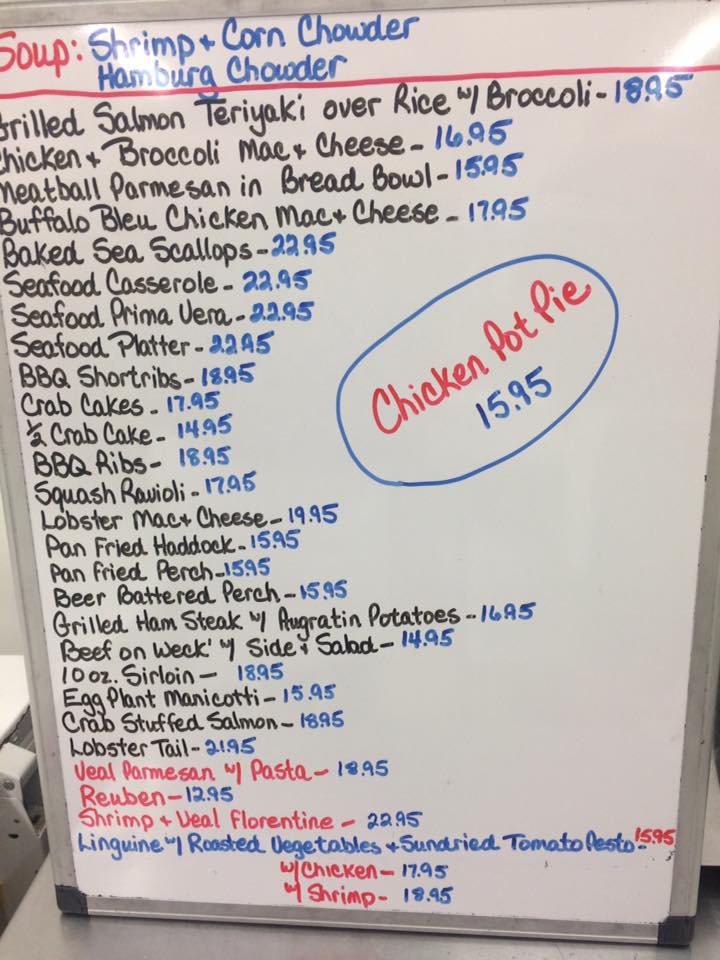 Soup: Shrimp + Corn Chowder
Hamburg Chowder
Grilled Salmon Teriyaki over Rice w/ Broccoli - 18.95
Chicken + Broccoli Mac + Cheese - 16.95
Meatball Parmesan in Bread Bowl - 15.95
Buffalo Bleu Chicken Mac + Cheese - 17.95
Baked Sea Scallops - 22.95
Seafood Casserole - 22.95
Seafood Prima Vera - 22.95
Seafood Platter - 22.95
BBQ Shortribs - 18.95
Crab Cakes - 17.95
1/2 Crab Cake - 14.95
BBQ Ribs - 18.95
Squash Ravioli - 17.95
Lobster Mac + Cheese - 19.95
Pan Fried Haddock - 15.95
Pan Fried Perch - 15.95
Beer Battered Perch - 15.95
Grilled Ham Steak w/ Augratin Potatoes - 16.95
Beef on Weck' w/ Side + Salad - 14.95
10 oz. Sirloin - 18.95
Egg Plant Manicotti - 15.95
Crab Stuffed Salmon - 18.95
Lobster Tail - 21.95
Veal Parmesan w/ Pasta - 18.95
Reuben - 12.95
Shrimp + Veal Florentine - 22.95
Linguine w/ Roasted Vegetables + Sundried Tomato Pesto - 15.95
w/ Chicken - 17.95
w/ Shrimp - 18.95
Chicken Pot Pie
15.95